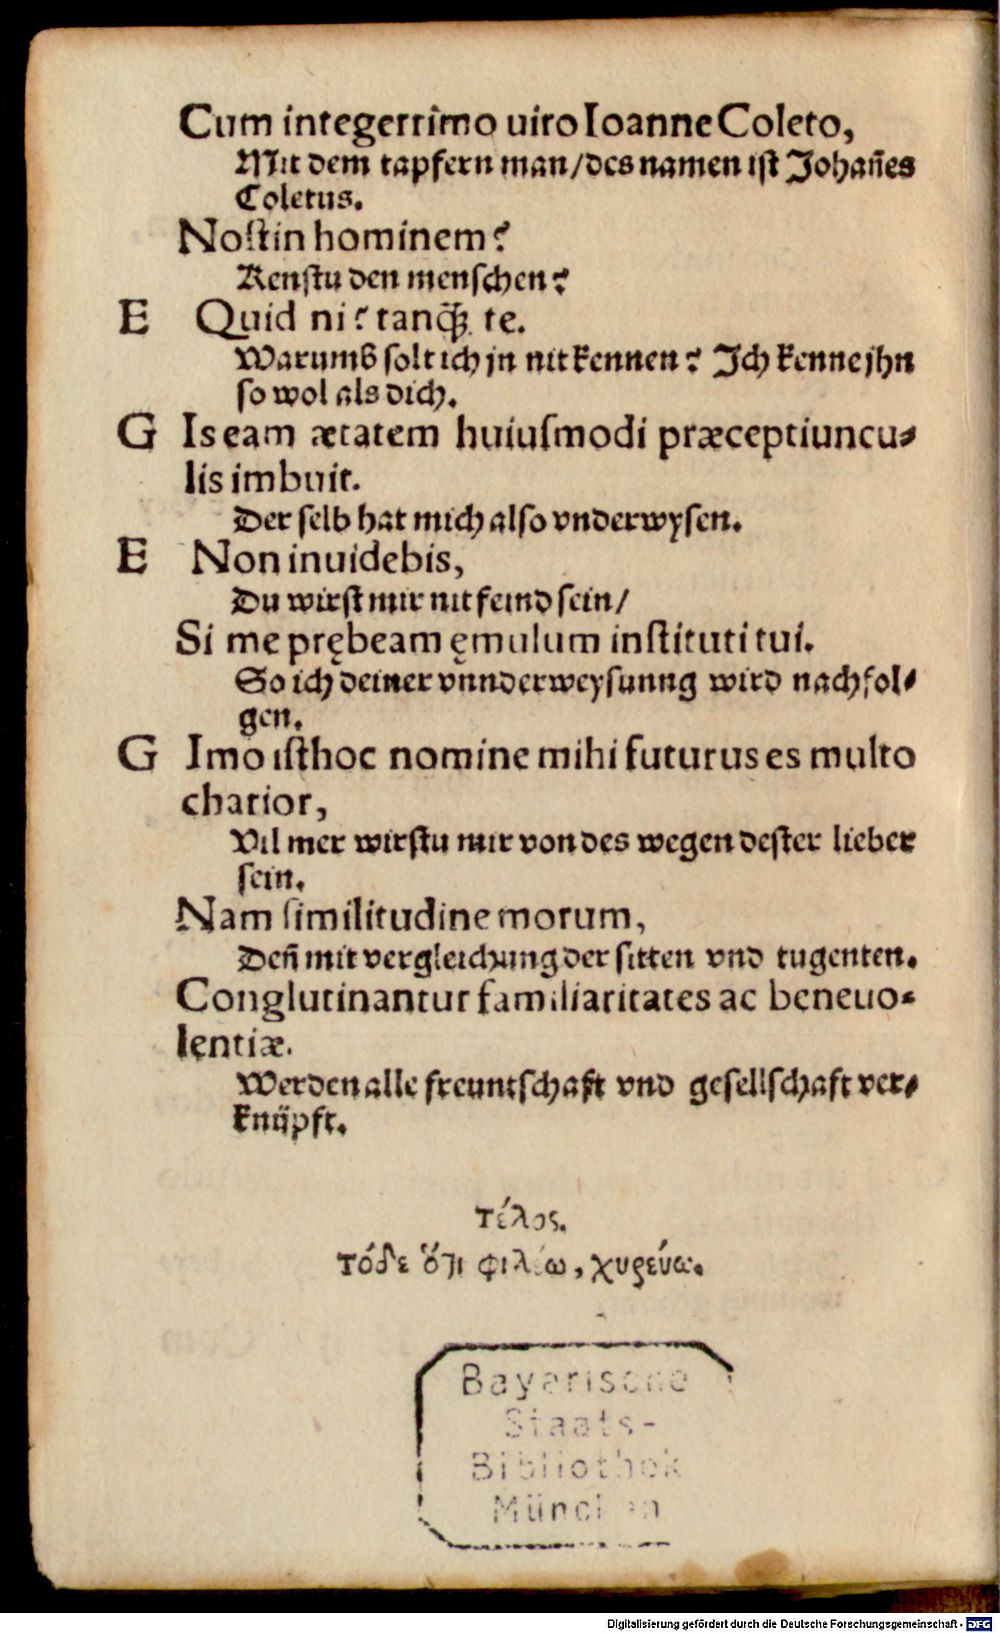 Cum integerrimo uiro Ioanne Coleto,
Mit dem tapfern man/des namen ist Johañes
Coletus.
Nostin hominem?
Kenstu den menschen?
E Quid ni? tanq̃ȝ te.
Warumb solt ich jn nit kennen? Ich kenne jhn
so wol als dich.
G Is eam ætatem huiusmodi præceptiuncu-
lis imbuit.
Der selb hat mich also vnderwysen.
E Non inuidebis,
Du wirst mir nit feind sein/
Si me prębeam ęmulum instituti tui.
So ich deiner vnnderweysunng wird nachfol-
gen.
G Imo isthoc nomine mihi futurus es multo
charior,
Vil mer wirstu mir von des wegen dester lieber
sein.
Nam similitudine morum,
Deñ mit vergleichung der sitten vnd tugenten.
Conglutinantur familiaritates ac beneuo-
lentiæ.
Werden alle freuntschaft vnd gesellschaft ver-
knüpft.
τέλος.
τόδε ὅτι φιλέω,
Bayerische
Staats-
Bibliothek
München
Digitalisierung gefördert durch die Deutsche Forschungsgemeinschaft - DFG